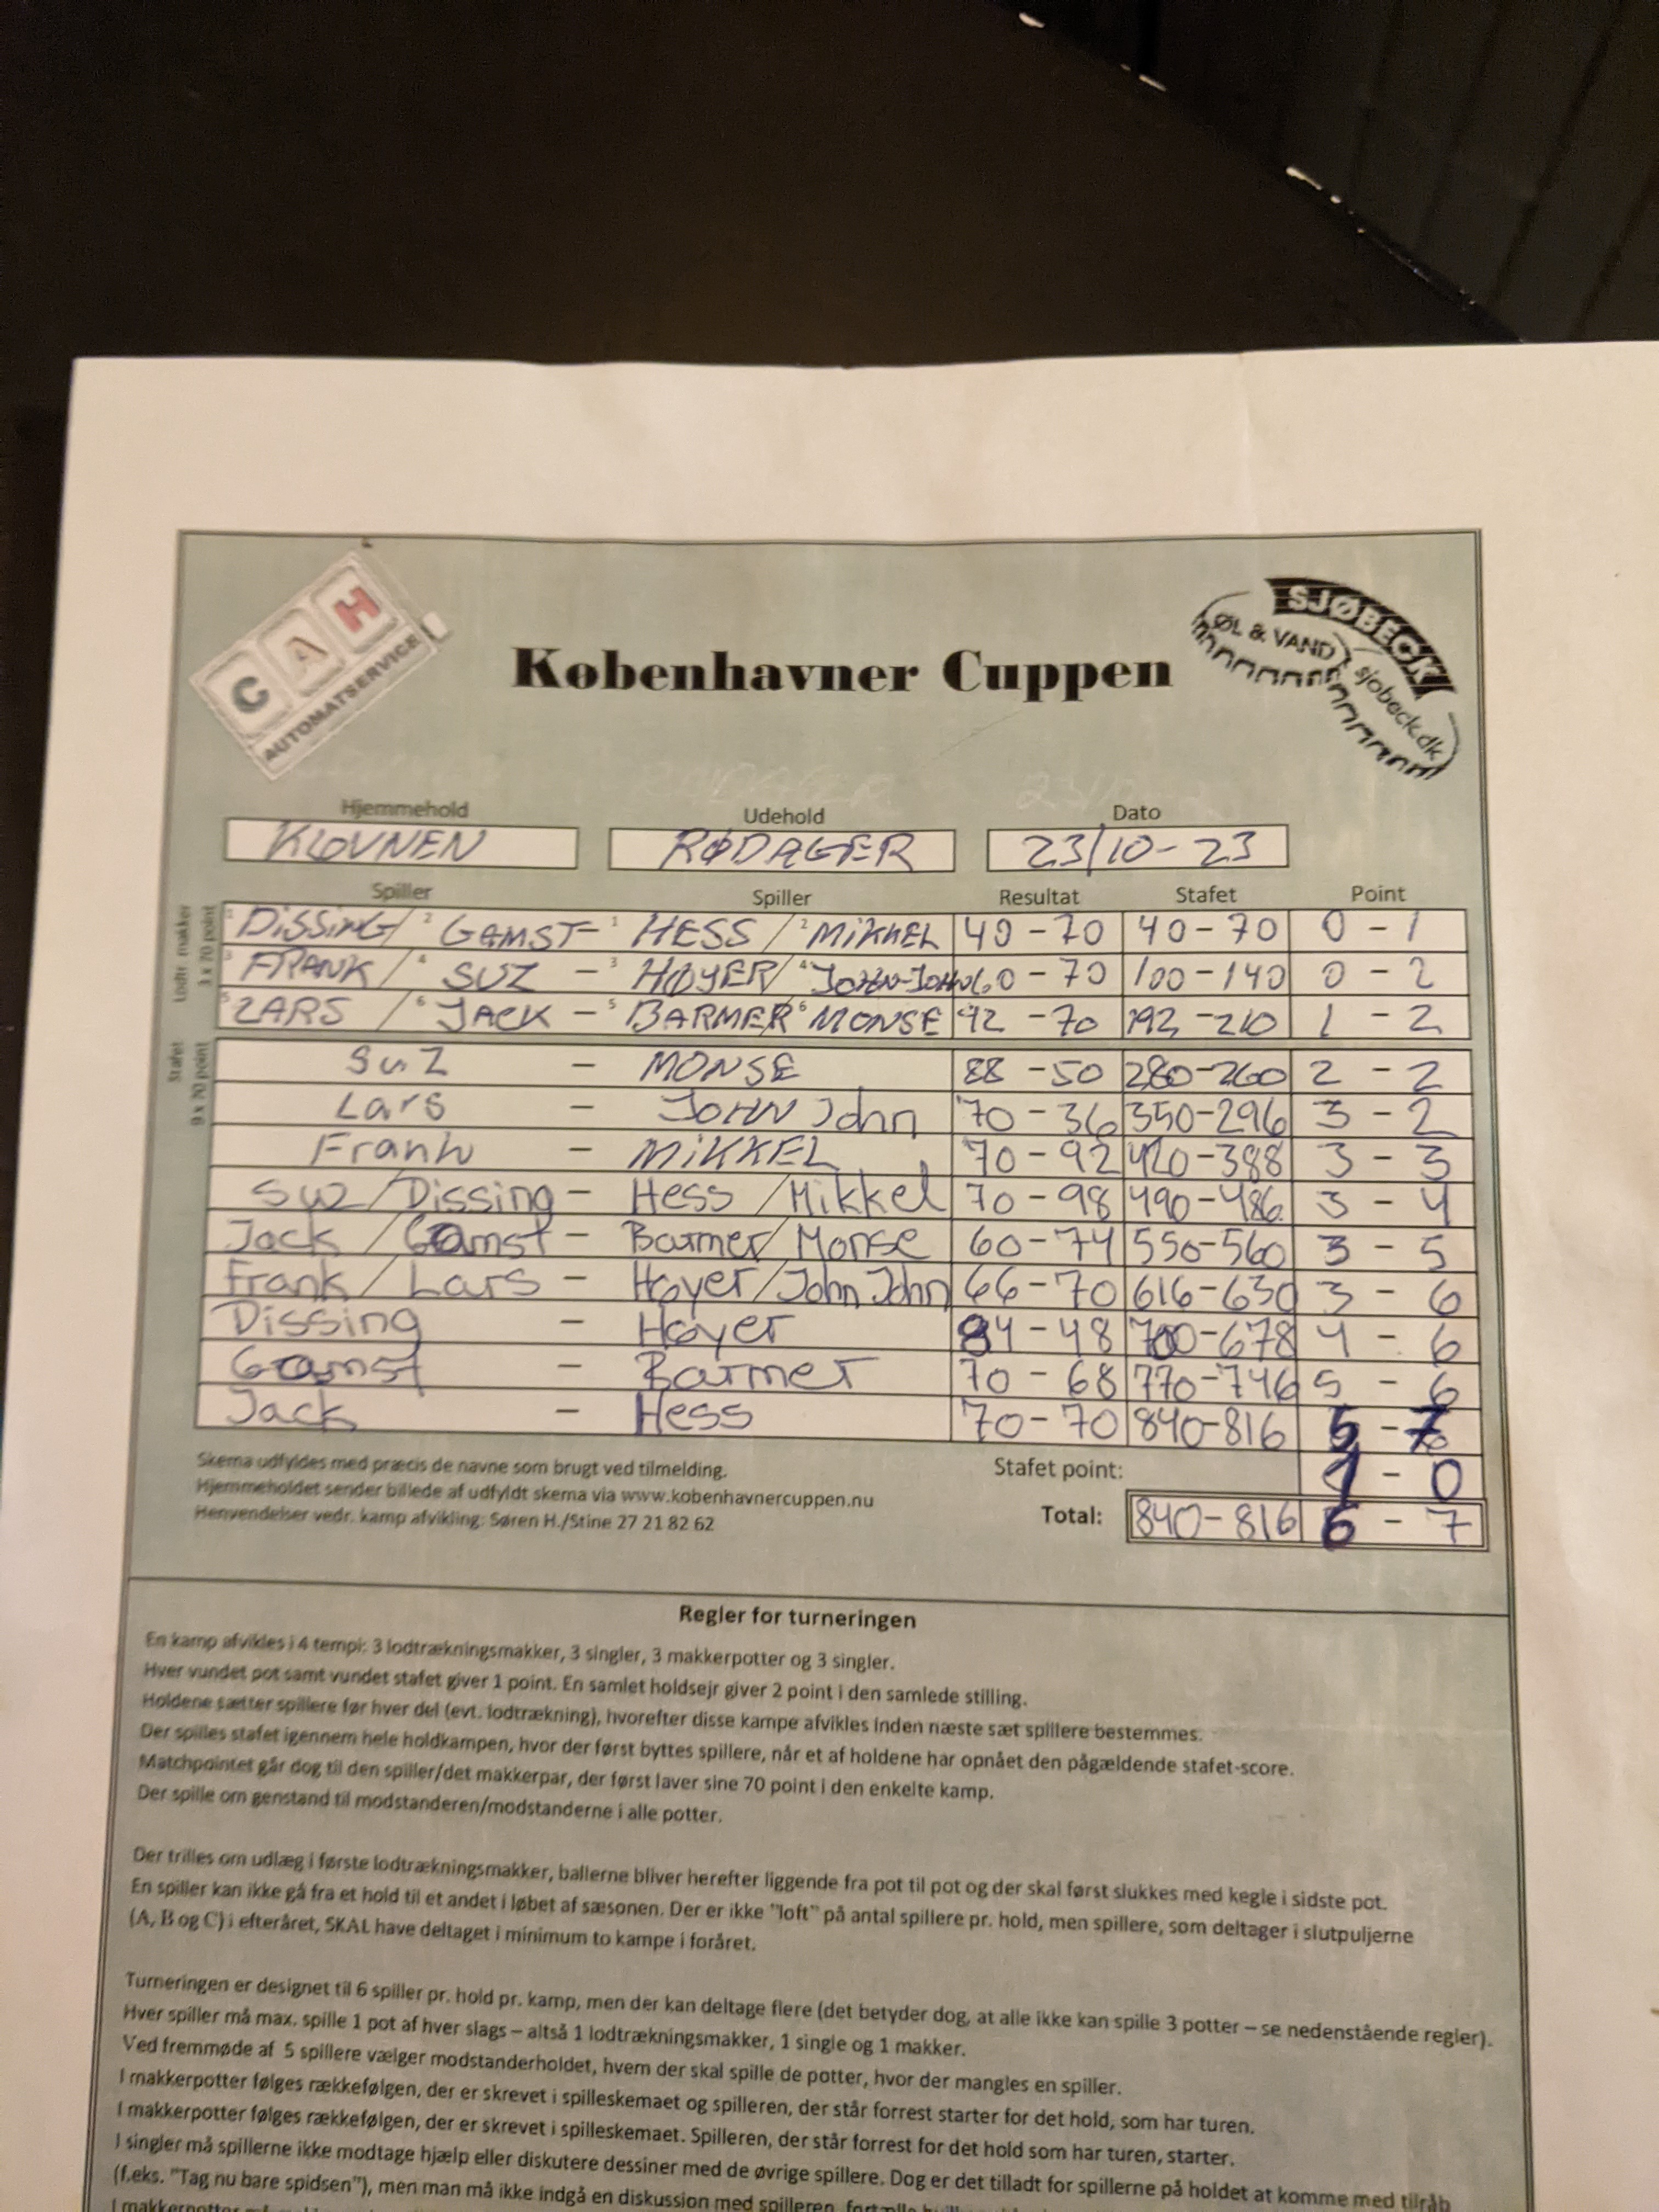 CAH
AUTOMATSERVICE
Københavner Cuppen
SJØBECK
ØL & VAND
sjobeck.dk
Hjemmehold Udehold Dato
KLOVNEN RØDAGER 23/10-23
Spiller Spiller Resultat Stafet Point
Lodtr. makker
3 x 70 point
1 DISSING / 2 GAMST - 1 HESS / 2 MIKKEL 40 - 70 40 - 70 0 - 1
3 FRANK / 4 SUZ - 3 HØYER / 4 JOHN-JOHN 60 - 70 100 - 140 0 - 2
5 LARS / 6 JACK - 5 BARMER 6 MONSE 92 - 70 192 - 210 1 - 2
Stafet
9 x 70 point
SuZ - MONSE 88 - 50 280-260 2 - 2
Lars - JOHN John 70 - 36 350-296 3 - 2
Frank - MIKKEL 70 - 92 420-388 3 - 3
Suz / Dissing - Hess / Mikkel 70 - 98 490-486 3 - 4
Jack / Gamst - Barmer / Monse 60-74 550-560 3 - 5
Frank / Lars - Høyer / John John 66-70 616-630 3 - 6
Dissing - Høyer 84-48 700-678 4 - 6
Gamst - Barmer 70 - 68 770-746 5 - 6
Jack - Hess 70-70 840-816 5 - 7
Skema udfyldes med præcis de navne som brugt ved tilmelding. Stafet point: 1 - 0
Hjemmeholdet sender billede af udfyldt skema via www.kobenhavnercuppen.nu
Henvendelser vedr. kamp afvikling: Søren H./Stine 27 21 82 62 Total: 840-816 6 - 7
Regler for turneringen
En kamp afvikles i 4 tempi: 3 lodtrækningsmakker, 3 singler, 3 makkerpotter og 3 singler.
Hver vundet pot samt vundet stafet giver 1 point. En samlet holdsejr giver 2 point i den samlede stilling.
Holdene sætter spillere før hver del (evt. lodtrækning), hvorefter disse kampe afvikles inden næste sæt spillere bestemmes.
Der spilles stafet igennem hele holdkampen, hvor der først byttes spillere, når et af holdene har opnået den pågældende stafet-score.
Matchpointet går dog til den spiller/det makkerpar, der først laver sine 70 point i den enkelte kamp.
Der spille om genstand til modstanderen/modstanderne i alle potter.
Der trilles om udlæg i første lodtrækningsmakker, ballerne bliver herefter liggende fra pot til pot og der skal først slukkes med kegle i sidste pot.
En spiller kan ikke gå fra et hold til et andet i løbet af sæsonen. Der er ikke "loft" på antal spillere pr. hold, men spillere, som deltager i slutpuljerne
(A, B og C) i efteråret, SKAL have deltaget i minimum to kampe i foråret.
Turneringen er designet til 6 spiller pr. hold pr. kamp, men der kan deltage flere (det betyder dog, at alle ikke kan spille 3 potter – se nedenstående regler).
Hver spiller må max. spille 1 pot af hver slags – altså 1 lodtrækningsmakker, 1 single og 1 makker.
Ved fremmøde af 5 spillere vælger modstanderholdet, hvem der skal spille de potter, hvor der mangles en spiller.
I makkerpotter følges rækkefølgen, der er skrevet i spilleskemaet og spilleren, der står forrest starter for det hold, som har turen.
I makkerpotter følges rækkefølgen, der er skrevet i spilleskemaet. Spilleren, der står forrest for det hold som har turen, starter.
I singler må spillerne ikke modtage hjælp eller diskutere dessiner med de øvrige spillere. Dog er det tilladt for spillerne på holdet at komme med tilråb
(f.eks. "Tag nu bare spidsen"), men man må ikke indgå en diskussion med spilleren,
I makkerpotter